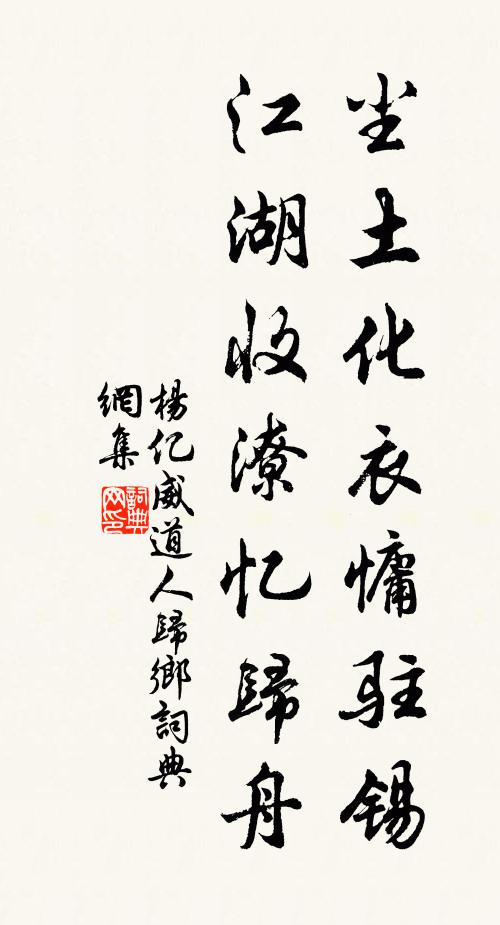 尘土化衣慵驻锡
江湖收潦忆歸舟
楊亿威道人歸鄉詞典
網集
詞典
网印